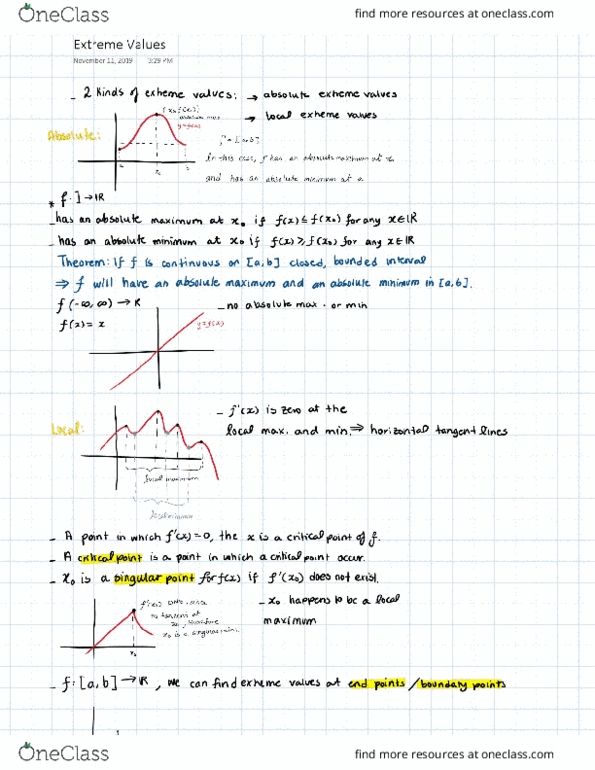 OneClass
find more resources at oneclass.com
Extreme Values
November 11, 2019 3:29 PM
- 2 kinds of extreme values: → absolute extreme values
→ local extreme values
(x₀, f(x₀))
absolute max
y=f(x)
Absolute:
I = [a,b]
In this case, f has an absolute maximum at x₀
and has an absolute minimum at a
x₀
* f: I → ℝ
- has an absolute maximum at x₀ if f(x) ≤ f(x₀) for any x∈ℝ
- has an absolute minimum at x₀ if f(x) ≥ f(x₀) for any x∈ℝ
Theorem: If f is continuous on [a,b] closed, bounded interval
⇒ f will have an absolute maximum and an absolute minimum in [a,b].
f (-∞,∞) → ℝ
- no absolute max. or min
f(x) = x
y=f(x)
- f'(x) is zero at the
Local:
local max. and min. ⇒ horizontal tangent lines
local maximum
local minimum
- A point in which f'(x)=0, the x is a critical point of f.
- A critical point is a point in which a critical point occur.
- x₀ is a singular point for f(x) if f'(x₀) does not exist.
no tangent at
x₀, therefore
x₀ is a singular
- x₀ happens to be a local
maximum
x₀
- f: [a,b] → ℝ, we can find extreme values at end points / boundary points
OneClass
find more resources at oneclass.com